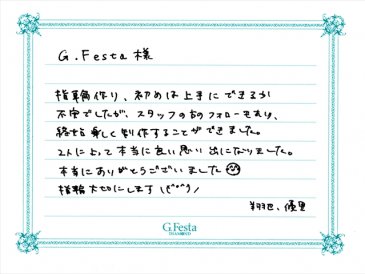 G.Festa 様
指輪作り、初めは上手にできるか
不安でしたが、スタッフの方のフォローもあり、
終始楽しく制作することができました。
2人にとって本当に良い思い出になりました。
本当にありがとうございました
指輪大切にします(^^)/
翔也、優里
G.Festa
DIAMOND